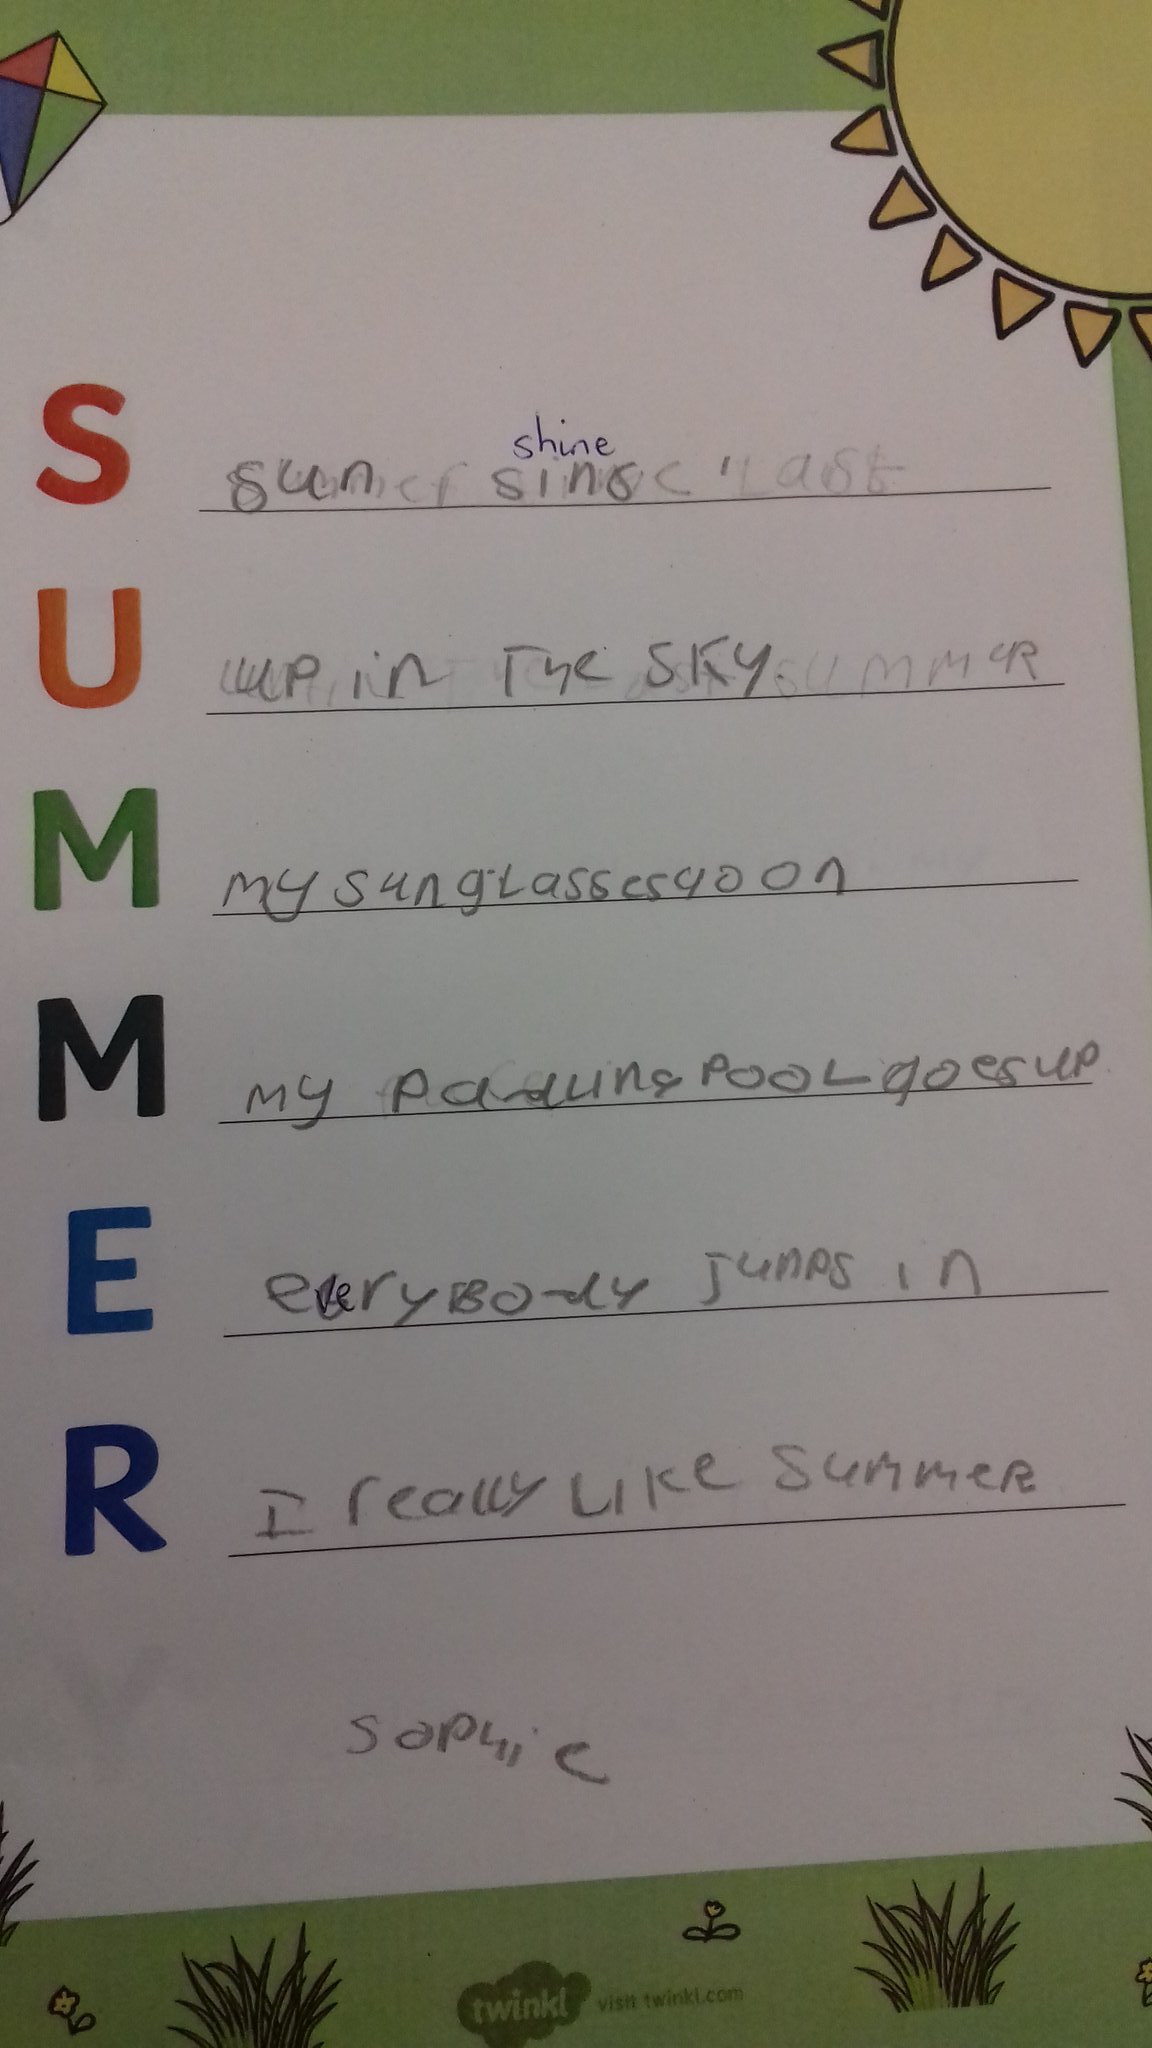 shine
S sun sins
U up in The SKy.
M my sunglasses go on
M my Paddling Pool goes up
E everyBody Jumps in
R I really Like Summer
Sophie
twinkl visit twinkl.com